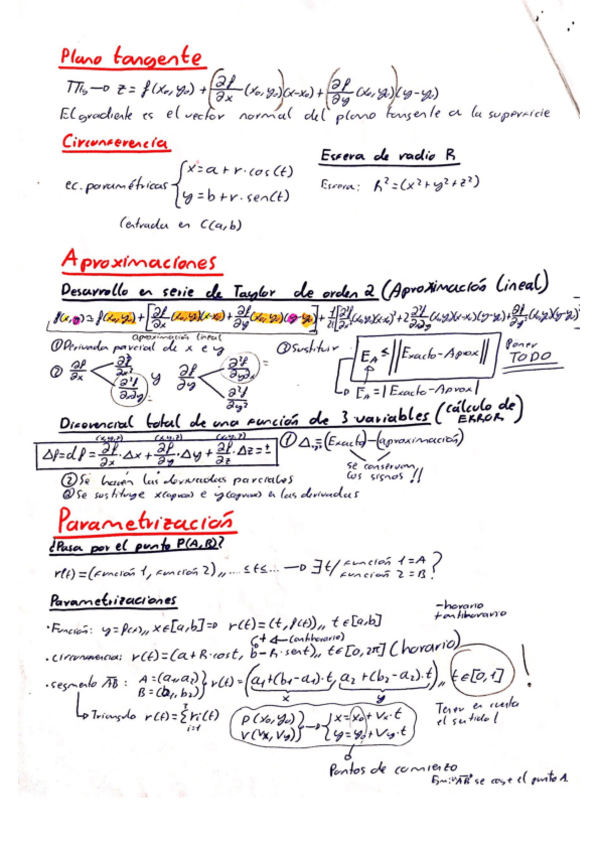 Plano tangente
π_tg → z = f(x₀,y₀) + (∂f/∂x (x₀,y₀))(x-x₀) + (∂f/∂y (x₀,y₀))(y-y₀)
El gradiente es el vector normal del plano tangente a la superficie
Circunferencia
ec. paramétricas { x = a + r·cos(t)
y = b + r·sen(t)
Centrada en C(a,b)
Esfera de radio R
Esfera: R² = (x²+y²+z²)
Aproximaciones
Desarrollo en serie de Taylor de orden 2 (Aproximación Lineal)
f(x,y) ≈ f(x₀,y₀) + [∂f/∂x (x₀,y₀)(x-x₀) + ∂f/∂y (x₀,y₀)(y-y₀)] + 1/2! [∂²f/∂x² (x₀,y₀)(x-x₀)² + 2 ∂²f/∂x∂y (x₀,y₀)(x-x₀)(y-y₀) + ∂²f
aproximación lineal
① Derivada parcial de x e y
② ∂f/∂x < ∂²f/∂x² ∂²f/∂x∂y y ∂f/∂y < ∂²f/∂y∂x ∂²f/∂y²
③ Sustituir
E_A ≤ ||Exacto-Aprox||
Poner TODO
E_A = |Exacto-Aprox|
Diferencial total de una función de 3 variables (cálculo de ERROR)
(x,y,z) (x,y,z) (x,y,z)
Δf = df = ∂f/∂x · Δx + ∂f/∂y · Δy + ∂f/∂z · Δz = ±
① Δ = (Exacto) - (aproximación)
se conservan los signos!!
② Se hacen las derivadas parciales
③ Se sustituye x(aprox) e y(aprox) en las derivadas
Parametrización
¿Pasa por el punto P(A,B)?
r(t) = (función 1, función 2) ,, ... ≤ t ≤ ... → ∃t / función 1 = A
función 2 = B ?
Parametrizaciones
- horario
+ antihorario
· Función: y = f(x) ,, x∈[a,b] ⇒ r(t) = (t, f(t)) ,, t∈[a,b]
+ ← (antihorario)
· circunferencia: r(t) = (a+R·cost, b-R·sent) ,, t∈[0,2π] (horario)
· segmento AB: A = (a₁,a₂)
B = (b₁,b₂) } r(t) = (a₁+(b₁-a₁)·t, a₂+(b₂-a₂)·t) ,, t∈[0,1] !
x y
Tener en cuenta el sentido!
↳ Triangulo r(t) = Σ rᵢ(t)
i=1
P(x₀,y₀)
V(Vx,Vy) } → { x = x₀ + Vx·t
y = y₀ + Vy·t
Puntos de comienzo
Ejm: "AB" se coge el punto A.